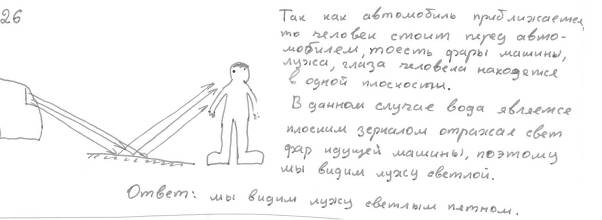 26
Так как автомобиль приближается,
то человек стоит перед авто-
мобилем, тоесть фары машины,
лужа, глаза человека находятся
в одной плоскости.
В данном случае вода является
плоским зеркалом отражая свет
фар идущей машины, поэтому
мы видим лужу светлой.
Ответ: мы видим лужу светлым пятном.